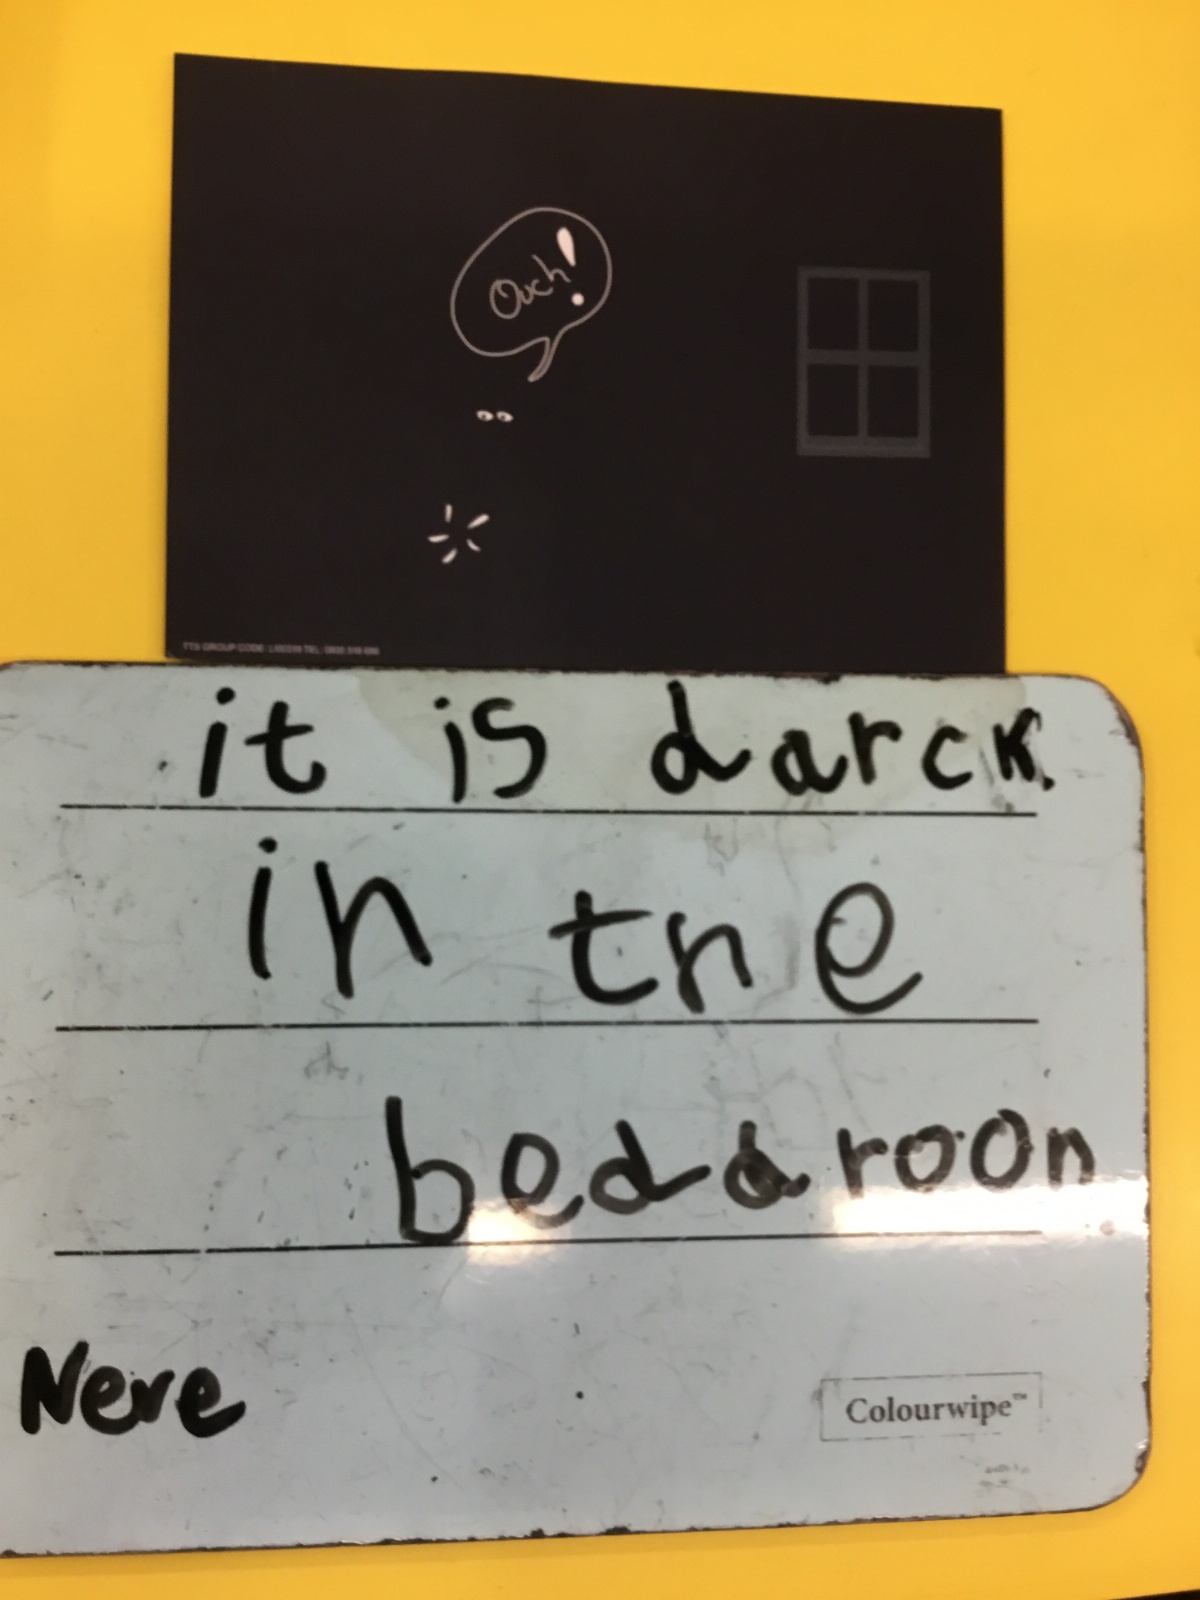 Ouch!
TTS GROUP CODE:
it is darck.
in the
bedaroon
Neve
Colourwipe™